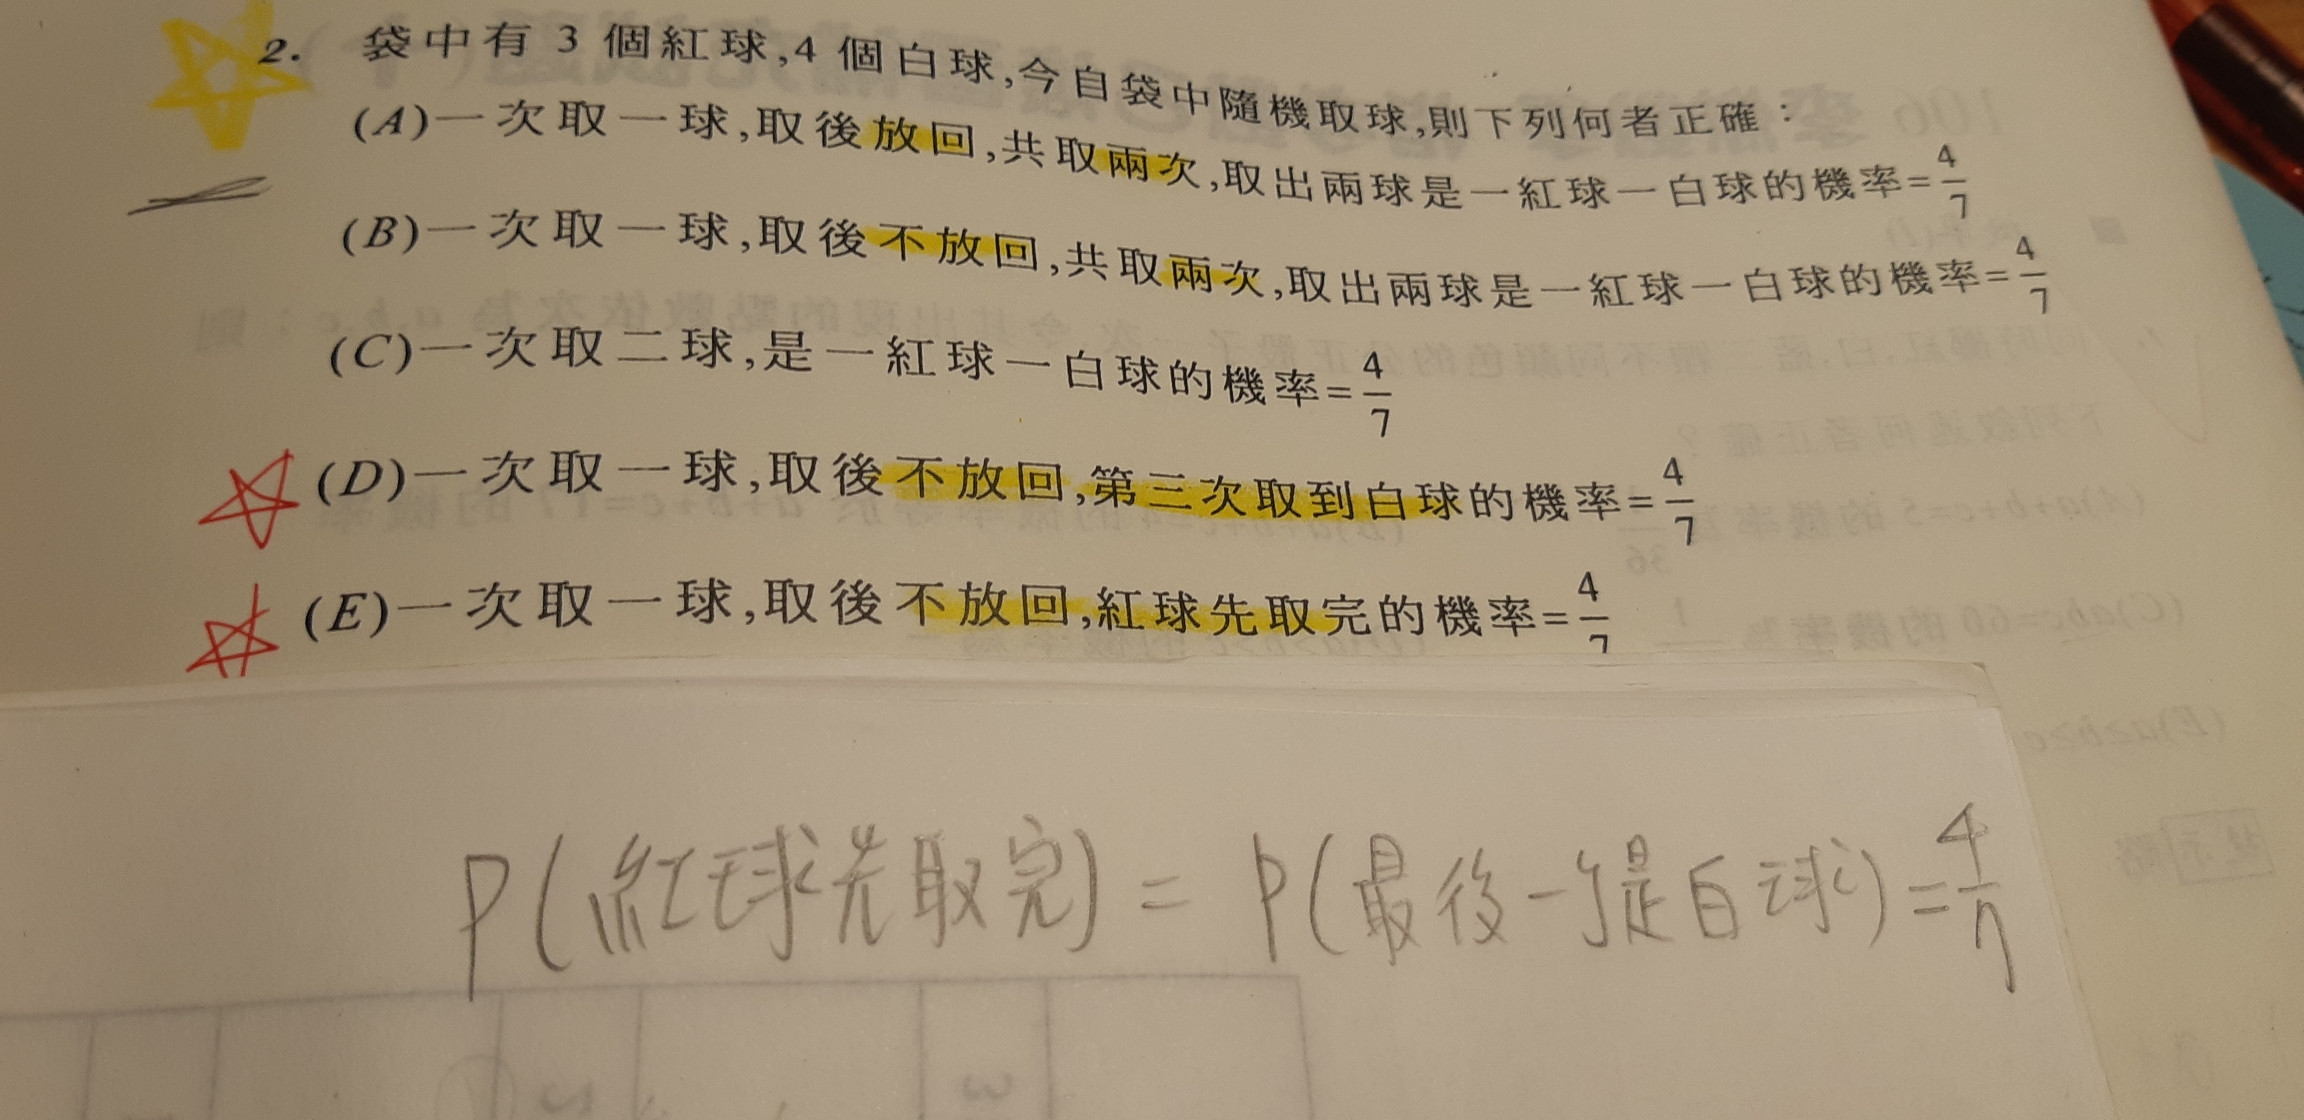 2. 袋中有 3 個紅球,4 個白球,今自袋中隨機取球,則下列何者正確：
(A)一次取一球,取後放回,共取兩次,取出兩球是一紅球一白球的機率=4/7
(B)一次取一球,取後不放回,共取兩次,取出兩球是一紅球一白球的機率=4/7
(C)一次取二球,是一紅球一白球的機率=4/7
(D)一次取一球,取後不放回,第三次取到白球的機率=4/7
(E)一次取一球,取後不放回,紅球先取完的機率=4/7
P(紅球先取完) = P(最後一個是白球) = 4/7